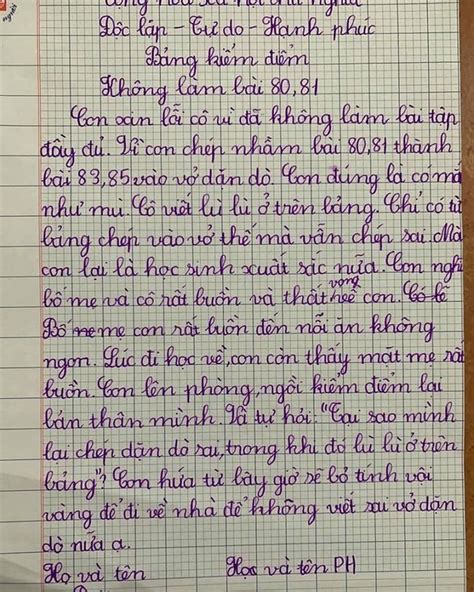 Cộng hoà xã hội chủ nghĩa
Độc lập - Tự do - Hạnh phúc
Bảng kiểm điểm
Không làm bài 80,81
Con xin lỗi cô vì đã không làm bài tập
đầy đủ. Vì con chép nhầm bài 80,81 thành
bài 83,85 vào vở dặn dò Con đúng là có mắt
như mù. Cô viết lù lù ở trên bảng. Chỉ có từ
bảng chép vào vở thế mà vẫn chép sai. Mà
con lại là học sinh xuất sắc nữa. Con nghĩ
bố mẹ và cô rất buồn và thất vọng về con. Có lẽ
Bố mẹ mẹ con rất buồn đến nỗi ăn không
ngon. Lúc đi học về, con còn thấy mặt mẹ rất
buồn. Con lên phòng, ngồi kiểm điểm lại
bản thân mình. Và tự hỏi: "Tại sao mình
lại chép dặn dò sai, trong khi đó lù lù ở trên
bảng"? Con hứa từ bây giờ sẽ bỏ tính vội
vàng để đi về nhà để không viết sai vở dặn
dò nữa ạ.
Họ và tên Họ và tên PH